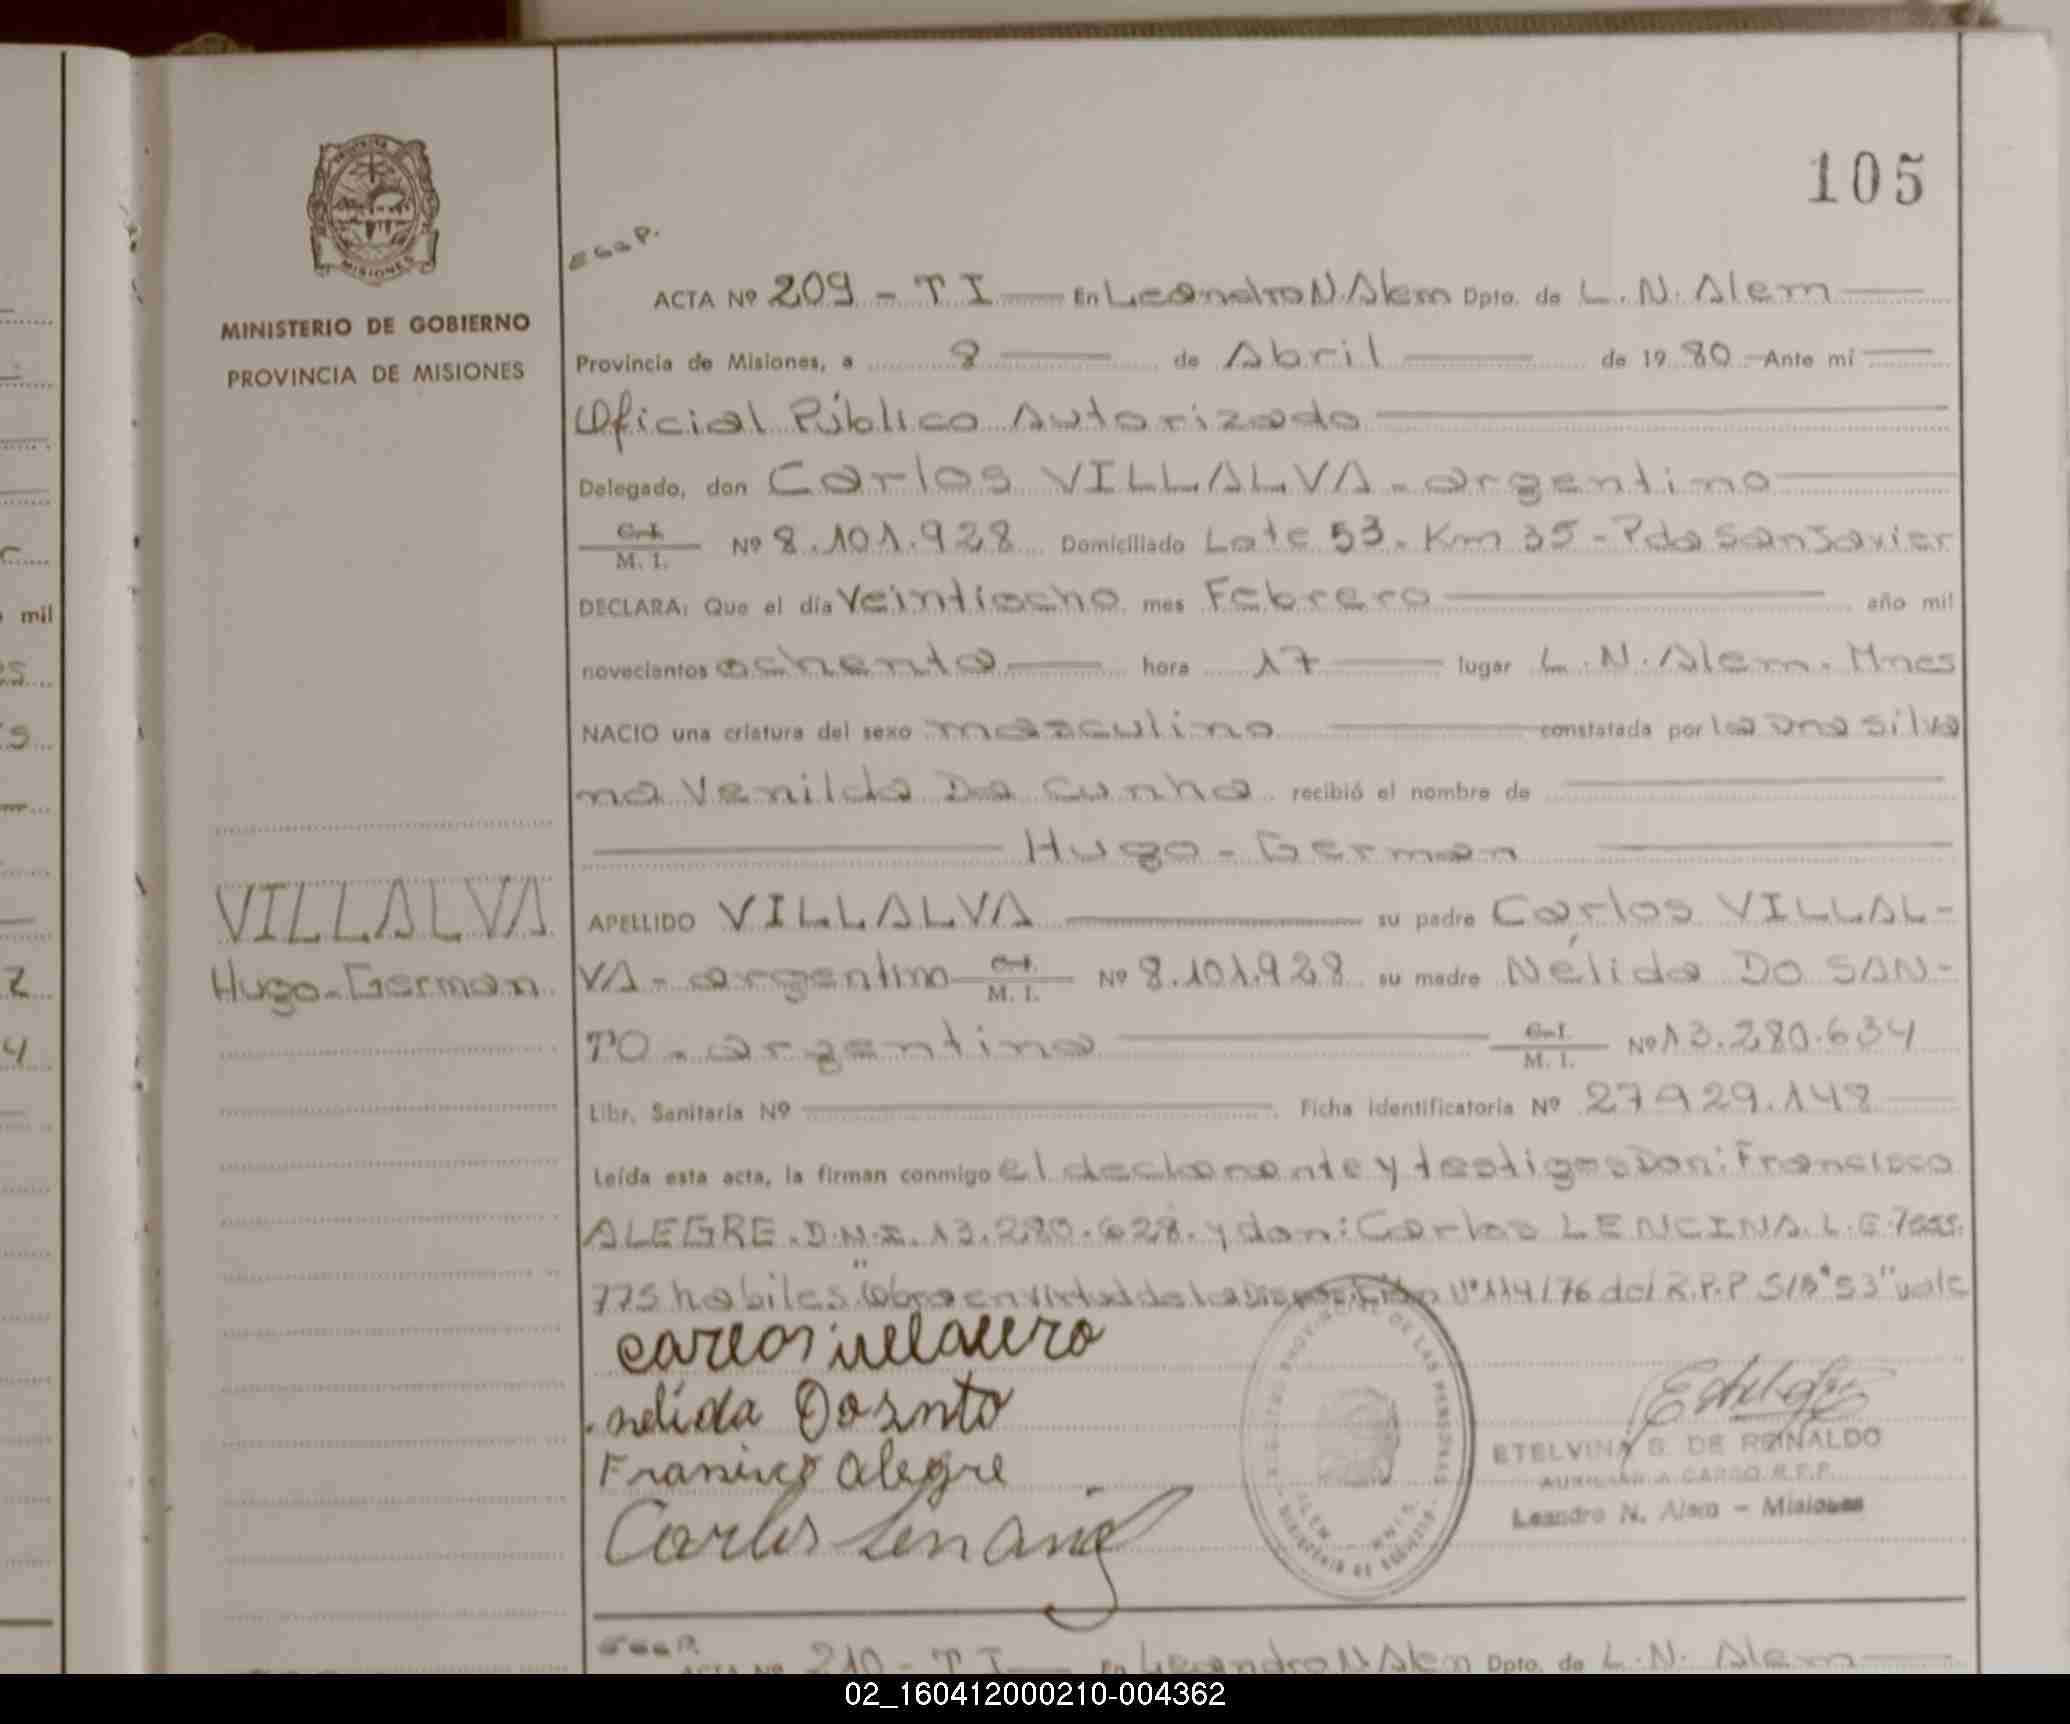 105
MISIONES
MINISTERIO DE GOBIERNO
PROVINCIA DE MISIONES
ACTA Nº 209 - T I — En Leandro N. Alem Dpto. de L. N. Alem —
Provincia de Misiones, a 8 — de Abril — de 1980 — Ante mi —
Oficial Público Autorizado —
Delegado, don Carlos VILLALVA - argentino —
C. I. / M. I. Nº 8.101.928 Domiciliado Lote 53. Km 35 - Pda San Javier
DECLARA: Que el día Veintiocho mes Febrero — año mil
novecientos ochenta — hora 17 — lugar L. N. Alem. Mnes
NACIO una criatura del sexo masculino — constatada por la Dna Silva
na Venilda Da Cunha recibió el nombre de —
— Hugo - German —
VILLALVA
Hugo - German
APELLIDO VILLALVA — su padre Carlos VILLAL-
VA - argentino C. I. / M. I. Nº 8.101.928 su madre Nélida DO SAN-
TO - argentina — C. I. / M. I. Nº 13.280.634
Libr. Sanitaria Nº — Ficha identificatoria Nº 27.929.148 —
Leída esta acta, la firman conmigo el declarante y testigos Don: Francisco
ALEGRE. D.N.I. 13.280.628. y don: Carlos LENCINA. L.E.
775 habiles. Obra en virtud de la Disposición Nº 114/76 del R.P.P S/B "53" vale
nelida Dosnto
Francisco alegre
Carlos
REGISTRO PROVINCIAL DE LAS PERSONAS
ALEM - MNES.
MINISTERIO DE GOBIERNO
ETELVINA B. DE REINALDO
AUXILIAR A CARGO R.P.P.
Leandro N. Alem - Misiones
ACTA Nº 210 - T I — En Leandro N Alem Dpto. de L. N. Alem —
mil
02_160412000210-004362